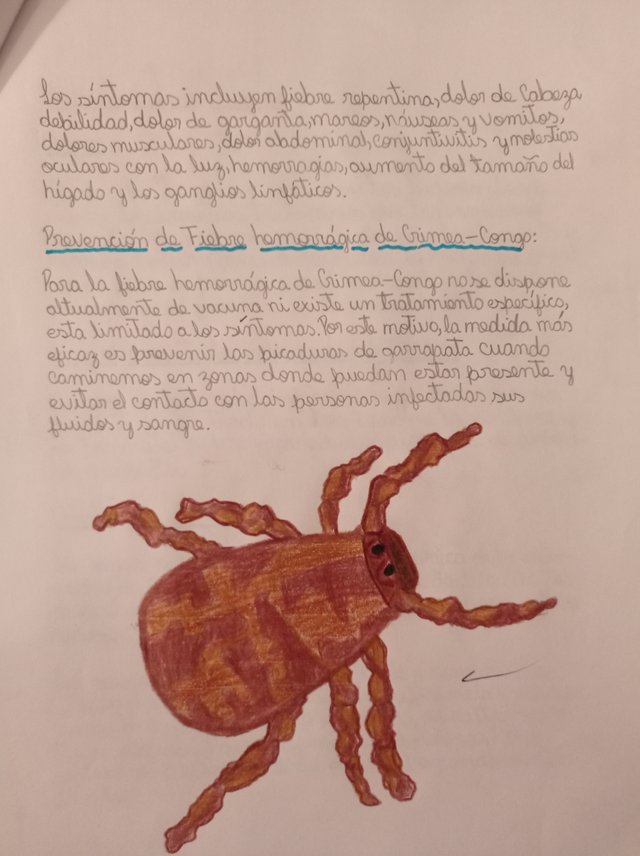 Los síntomas incluyen fiebre repentina, dolor de Cabeza,
debilidad, dolor de garganta, mareos, náuseas y vomitos,
dolores musculares, dolor abdominal, conjuntivitis y molestias
oculares con la luz, hemorragias, aumento del tamaño del
hígado y los ganglios linfáticos.
Prevención de Fiebre hemorrágica de Crimea-Congo:
Para la fiebre hemorrágica de Crimea-Congo no se dispone
altualmente de vacuna ni existe un tratamiento específico,
esta limitado a los síntomas. Por este motivo, la medida más
eficaz es prevenir las picaduras de garrapata cuando
caminemos en zonas donde puedan estar presente y
evitar el contacto con las personas infectadas sus
fluidos y sangre.